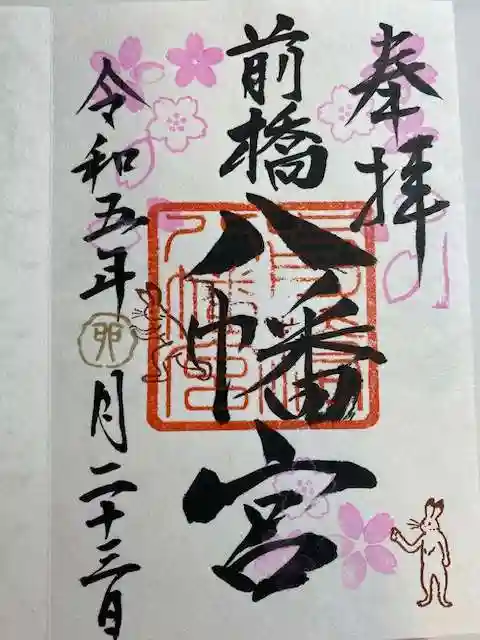 奉拝
前橋八幡宮
令和五年卯月二十三日